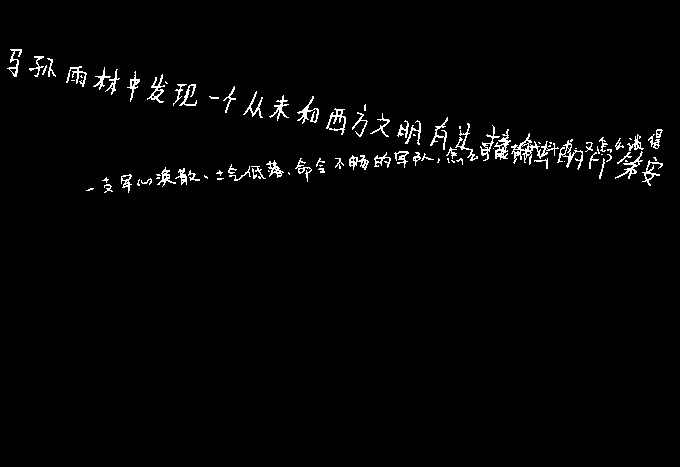 马孙雨林中发现一个从未和西方文明有过接触的印第安
一支军心涣散、士气低落、命令不畅的军队,怎么可能有战斗力?又怎么谈得